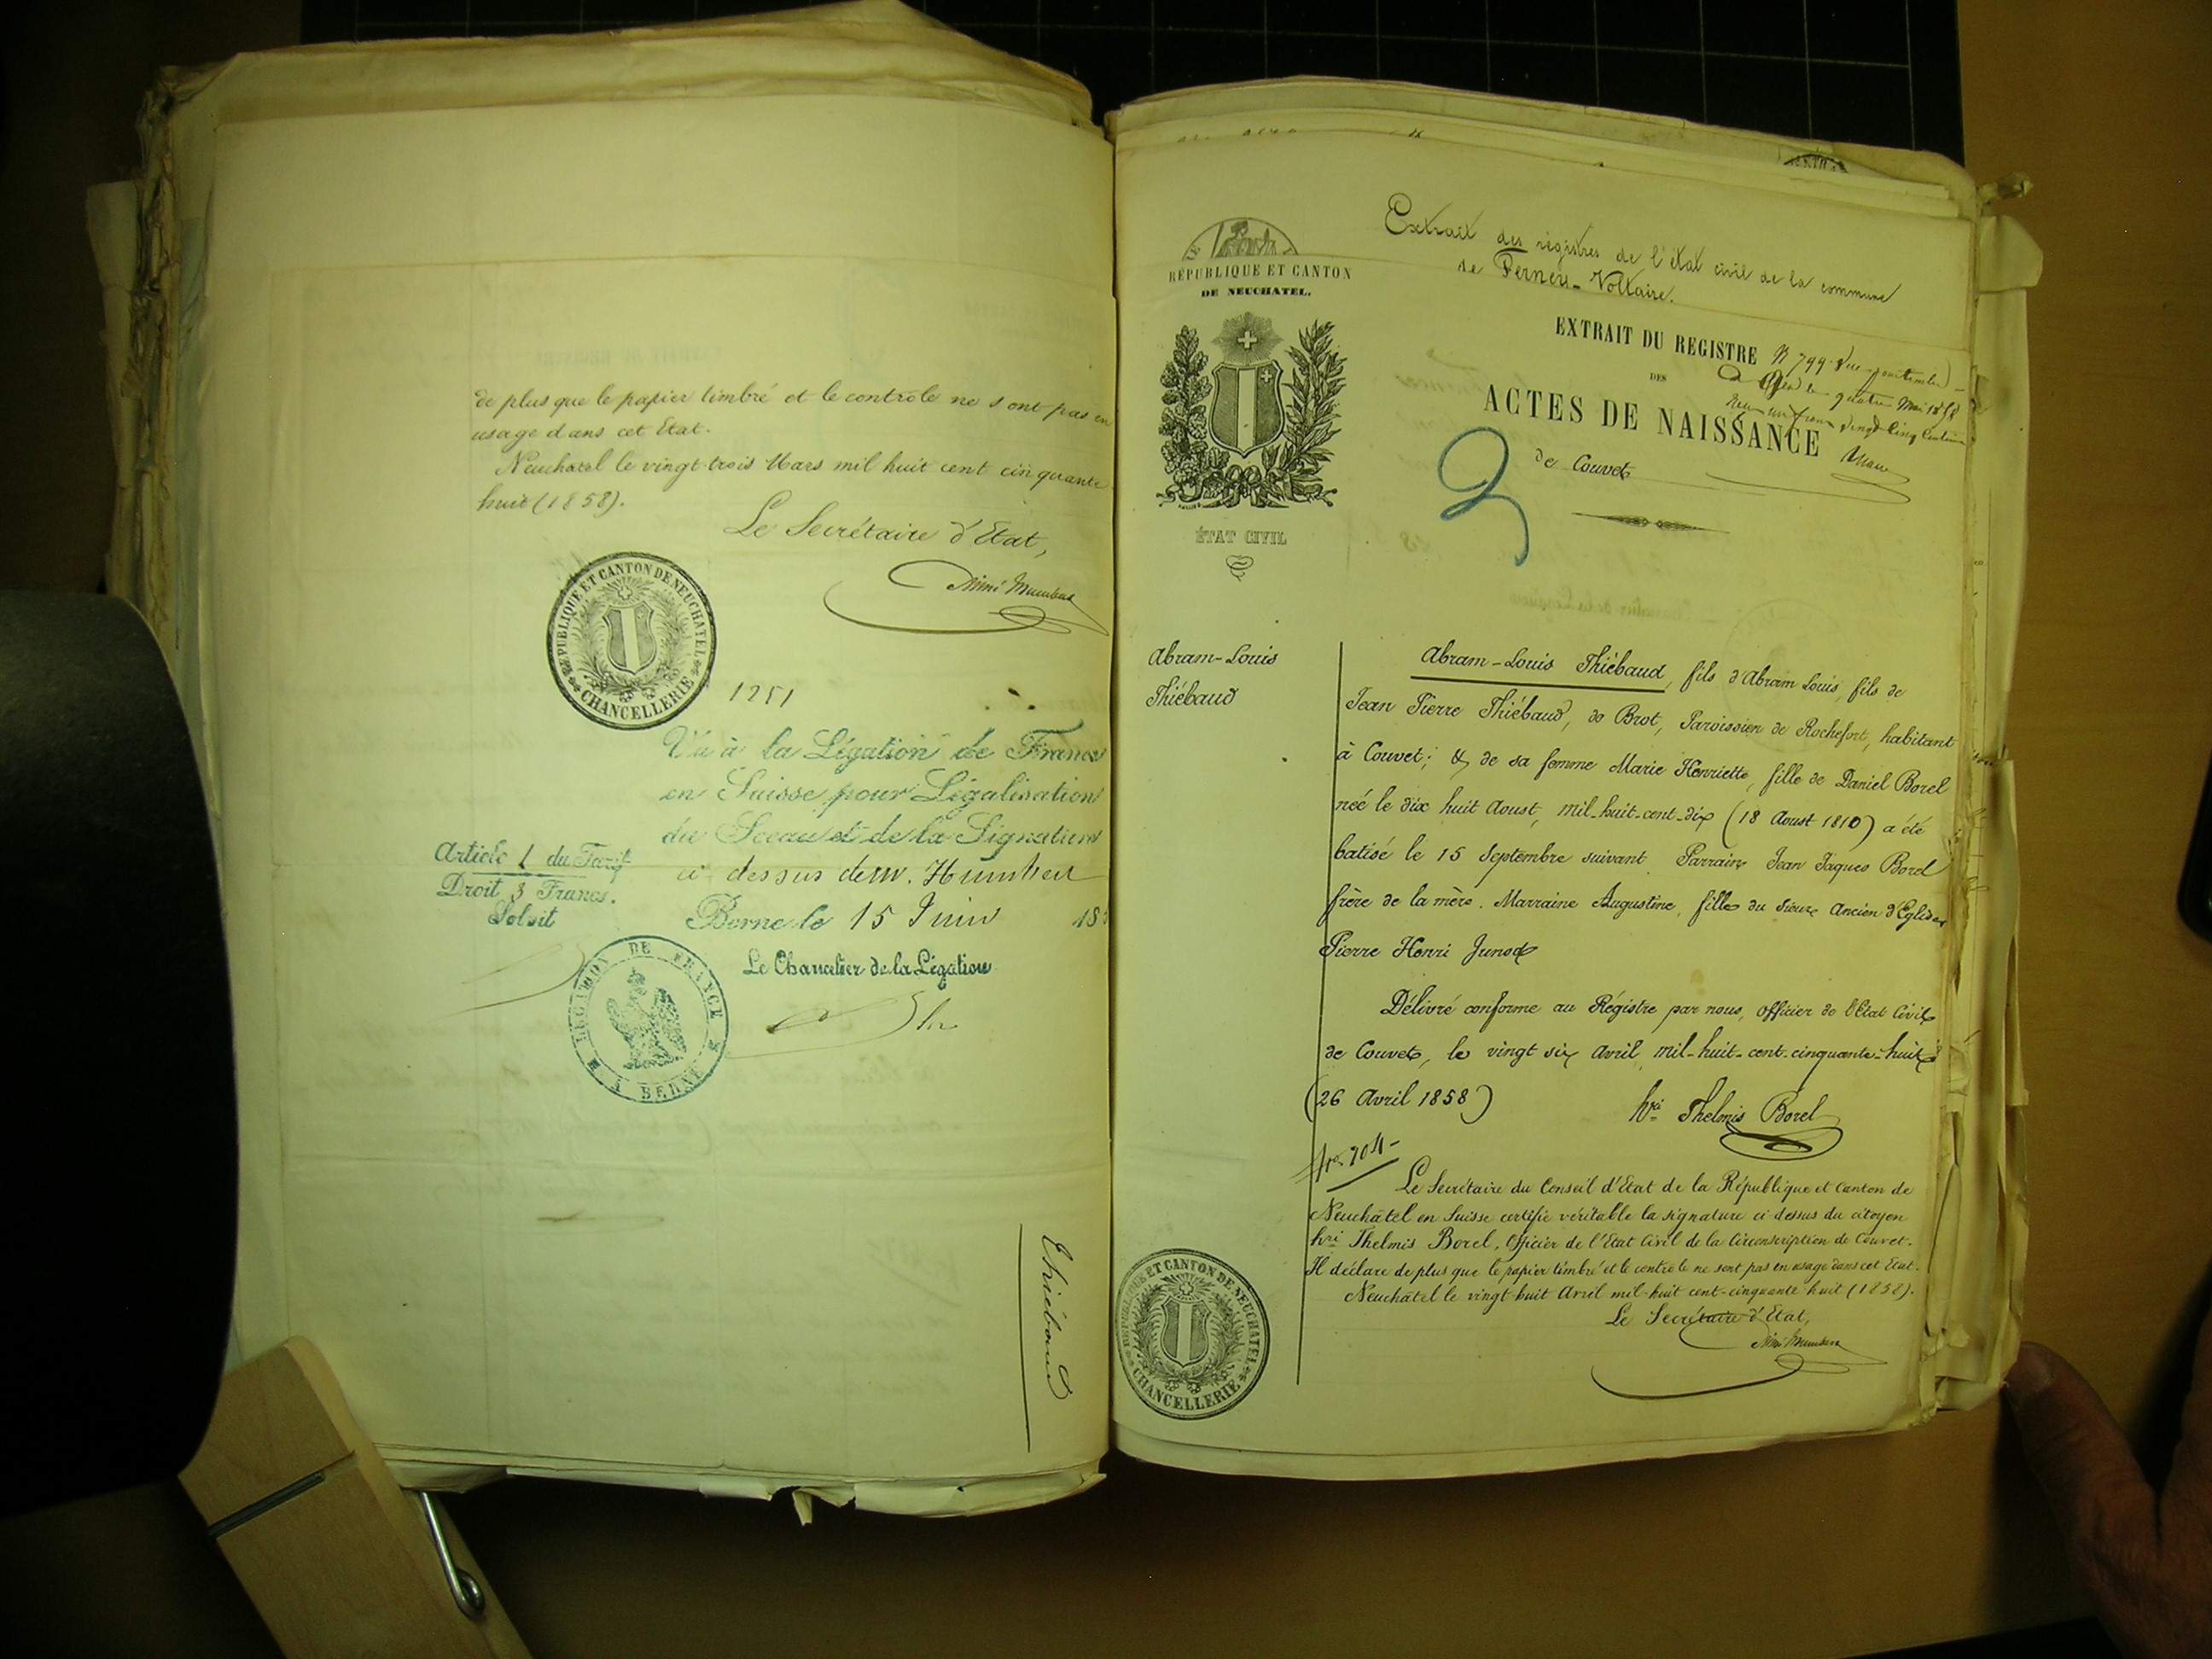 de plus que le papier timbré et le controle ne sont pas en
usage dans cet Etat.
Neuchatel le vingt-trois Mars mil huit cent cinquante
huit (1858).
Le Secrétaire d'Etat,
RÉPUBLIQUE ET CANTON DE NEUCHATEL
CHANCELLERIE
1251
Vu à la Légation de France
en Suisse pour Légalisation
du Sceau et de la Signature
ci dessus de M. Humbert
Berne le 15 Juin 185
Article 1 du Tarif
Droit 3 Francs.
Le Chancelier de la Légation
LEGATION DE FRANCE
A BERNE
Thiébaud
Extrait des régistres de l'état civil de la commune
de Ferney-Voltaire.
RÉPUBLIQUE ET CANTON
DE NEUCHATEL.
ÉTAT CIVIL
EXTRAIT DU REGISTRE
DES
ACTES DE NAISSANCE
de Couvet
N 799. Vu pour timbre
à Gex le quatre Mai 1858
Reçu un franc vingt-cinq centimes
2
Abram-Louis
Thiébaud
Abram-Louis Thiébaud, fils d'Abram Louis, fils de
Jean Pierre Thiébaud, de Brot, Paroissien de Rochefort, habitant
à Couvet; & de sa femme Marie Henriette, fille de Daniel Borel
neé le dix huit Aoust, mil-huit-cent-dix (18 Aoust 1810) a été
batisé le 15 Septembre suivant Parrain Jean Jaques Borel
frère de la mère. Marraine Augustine, fille du Sieur Ancien d'Eglise
Pierre Henri Junod
Délivré conforme au Régistre par nous, officier de l'Etat Civil
de Couvet, le vingt six Avril, mil-huit-cent-cinquante-huit
(26 Avril 1858)
hri Thelmis Borel
Le Secrétaire du Conseil d'Etat de la République et Canton de
Neuchâtel en Suisse certifie véritable la signature ci dessus du citoyen
hri Thelmis Borel, Officier de l'Etat Civil de la Circonscription de Couvet.
Il déclare de plus que le papier timbré et le controle ne sont pas en usage dans cet Etat.
Neuchatel le vingt-huit Avril mil-huit cent-cinquante huit (1858).
Le Secrétaire d'Etat,
RÉPUBLIQUE ET CANTON DE NEUCHATEL
CHANCELLERIE